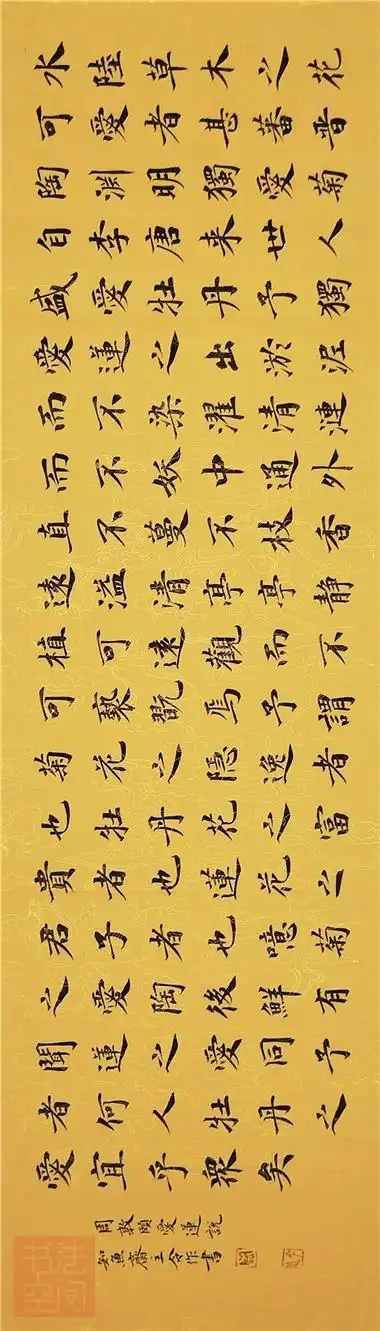 水陸草木之花
可愛者甚蕃晋
陶渊明獨愛菊
自李唐来世人
盛愛牡丹予獨
愛蓮之出淤泥
而不染濯清漣
而不妖中通外
直不蔓不枝香
遠溢清亭亭静
植可遠觀而不
可褻翫焉予謂
菊花之隱逸者
也牡丹花之富
貴者也蓮花之
君子者也噫菊
之愛陶後鮮有
聞蓮之愛同予
者何人牡丹之
愛宜乎衆矣
周敦頤愛蓮説
知魚齋主令作書
书法
空间